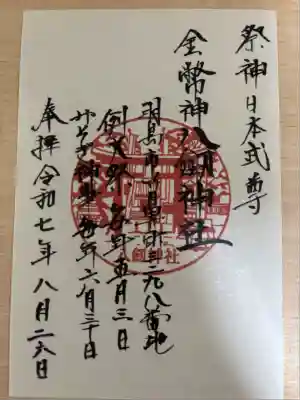 祭神日本武尊
金幣神八剱神社
羽島市
例大祭 毎年五月三日
みそぎ神事毎年六月三十日
奉拝令和七年八月二六日